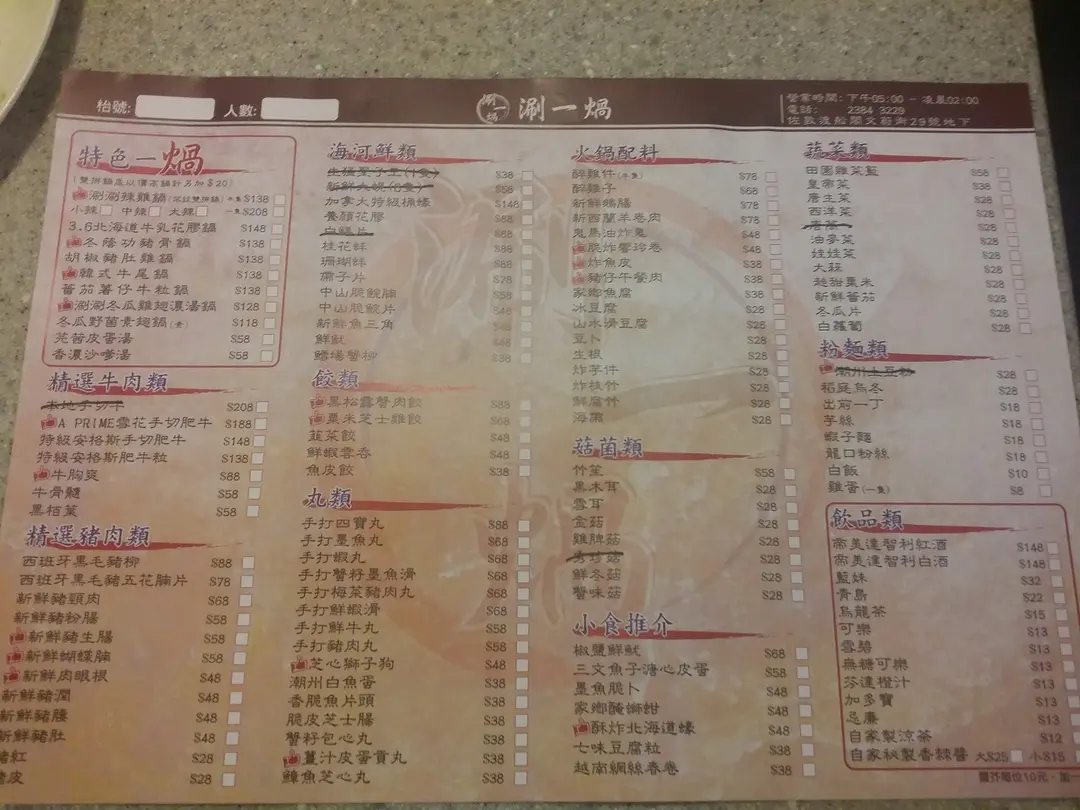 枱號:
人數:
涮一煱
涮一煱
營業時間: 下午05:00 - 凌晨02:00
電話: 2384 3229
佐敦渡船閣文蔚街29號地下
特色一煱
(雙拼鍋底以價高鍋計另加$20)
涮涮辣雞鍋 半隻$138
小辣 中辣 大辣 一隻$208
3.6北海道牛乳花膠鍋 $148
冬蔭功豬骨鍋 $138
胡椒豬肚雞鍋 $138
韓式牛尾鍋 $138
蕃茄薯仔牛粒鍋 $138
涮涮冬瓜雞翅濃湯鍋 $128
冬瓜野菌素翅鍋(素) $118
芫茜皮蛋湯 $58
香濃沙嗲湯 $58
精選牛肉類
本地手切牛 $208
A PRIME雪花手切肥牛 $188
特級安格斯手切肥牛 $148
特級安格斯肥牛粒 $138
牛胸爽 $88
牛骨髓 $58
黑栢葉 $58
精選豬肉類
西班牙黑毛豬柳 $88
西班牙黑毛豬五花腩片 $78
新鮮豬頸肉 $68
新鮮豬粉腸 $58
新鮮豬生腸 $58
新鮮蝴蝶腩 $58
新鮮肉眼根 $48
新鮮豬潤 $48
新鮮豬腰 $48
新鮮豬肚 $48
豬紅 $28
皮 $28
海河鮮類
生猛聖子王(1隻) $38
新鮮大蜆(6隻) $58
加拿大特級桶蠔 $148
養顏花膠 $88
白鱔片 $88
桂花蚌 $88
珊瑚蚌 $88
帶子片 $78
中山脆鯇腩 $58
中山脆鯇片 $48
新鮮魚三角 $48
鮮魷 $48
鱆場蟹柳 $38
餃類
黑松露蟹肉餃 $88
粟米芝士雞餃 $68
韮菜餃 $48
鮮蝦雲吞 $48
魚皮餃 $38
丸類
手打四寶丸 $88
手打墨魚丸 $68
手打蝦丸 $68
手打蟹籽墨魚滑 $68
手打梅菜豬肉丸 $68
手打鮮蝦滑 $68
手打鮮牛丸 $58
手打豬肉丸 $58
芝心獅子狗 $48
潮州白魚蛋 $38
香脆魚片頭 $38
脆皮芝士腸 $38
蟹籽包心丸 $38
薑汁皮蛋貢丸 $38
鱆魚芝心丸 $38
火鍋配料
醉雞件(半隻) $78
醉雞子 $68
新鮮鵝腸 $78
新西蘭羊卷肉 $78
鬼馬油炸鬼 $48
脆炸響玲卷 $48
炸魚皮 $38
豬仔午餐肉 $38
家鄉魚腐 $38
冰豆腐 $28
山水滑豆腐 $28
豆卜 $28
生根 $28
炸芋件 $28
炸枝竹 $28
鮮腐竹 $28
海帶 $28
菇菌類
竹笙 $58
黑木耳 $28
雪耳 $28
金菇 $28
雞脾菇 $28
秀珍菇 $28
鮮冬菇 $28
蟹味菇 $28
小食推介
椒鹽鮮魷 $68
三文魚子溏心皮蛋 $58
墨魚脆卜 $48
家鄉醃蟛蚶 $48
酥炸北海道蠔 $48
七味豆腐粒 $38
越南網絲春卷 $38
蔬菜類
田園雜菜籃 $58
皇帝菜 $38
唐生菜 $28
西洋菜 $28
唐蒿 $28
油麥菜 $28
娃娃菜 $28
大蒜 $28
超甜粟米 $28
新鮮蕃茄 $28
冬瓜片 $28
白蘿蔔 $28
粉麵類
潮州土豆粉 $28
稻庭烏冬 $28
出前一丁 $18
芋絲 $18
蝦子麵 $18
龍口粉絲 $18
白飯 $10
雞蛋(一隻) $8
飲品類
帝美達智利紅酒 $148
帝美達智利白酒 $148
藍妹 $32
青島 $22
烏龍茶 $15
可樂 $13
雪碧 $13
無糖可樂 $13
芬達橙汁 $13
加多寶 $13
忌廉 $13
自家製涼茶 $12
自家秘製香辣醬 大$25 小$15
醬芥每位10元，加一